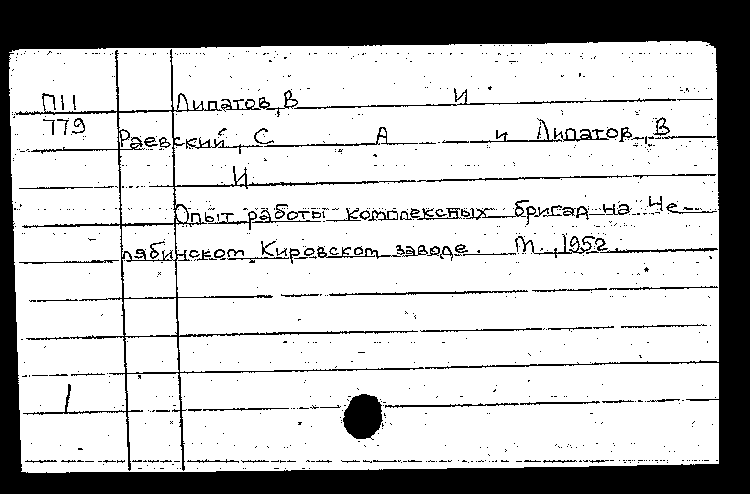 П11 Липатов, В И
779
Раевский, С А и Липатов, В
И
Опыт работы комплексных бригад на Че-
лябинском Кировском заводе. М., 1952.
1